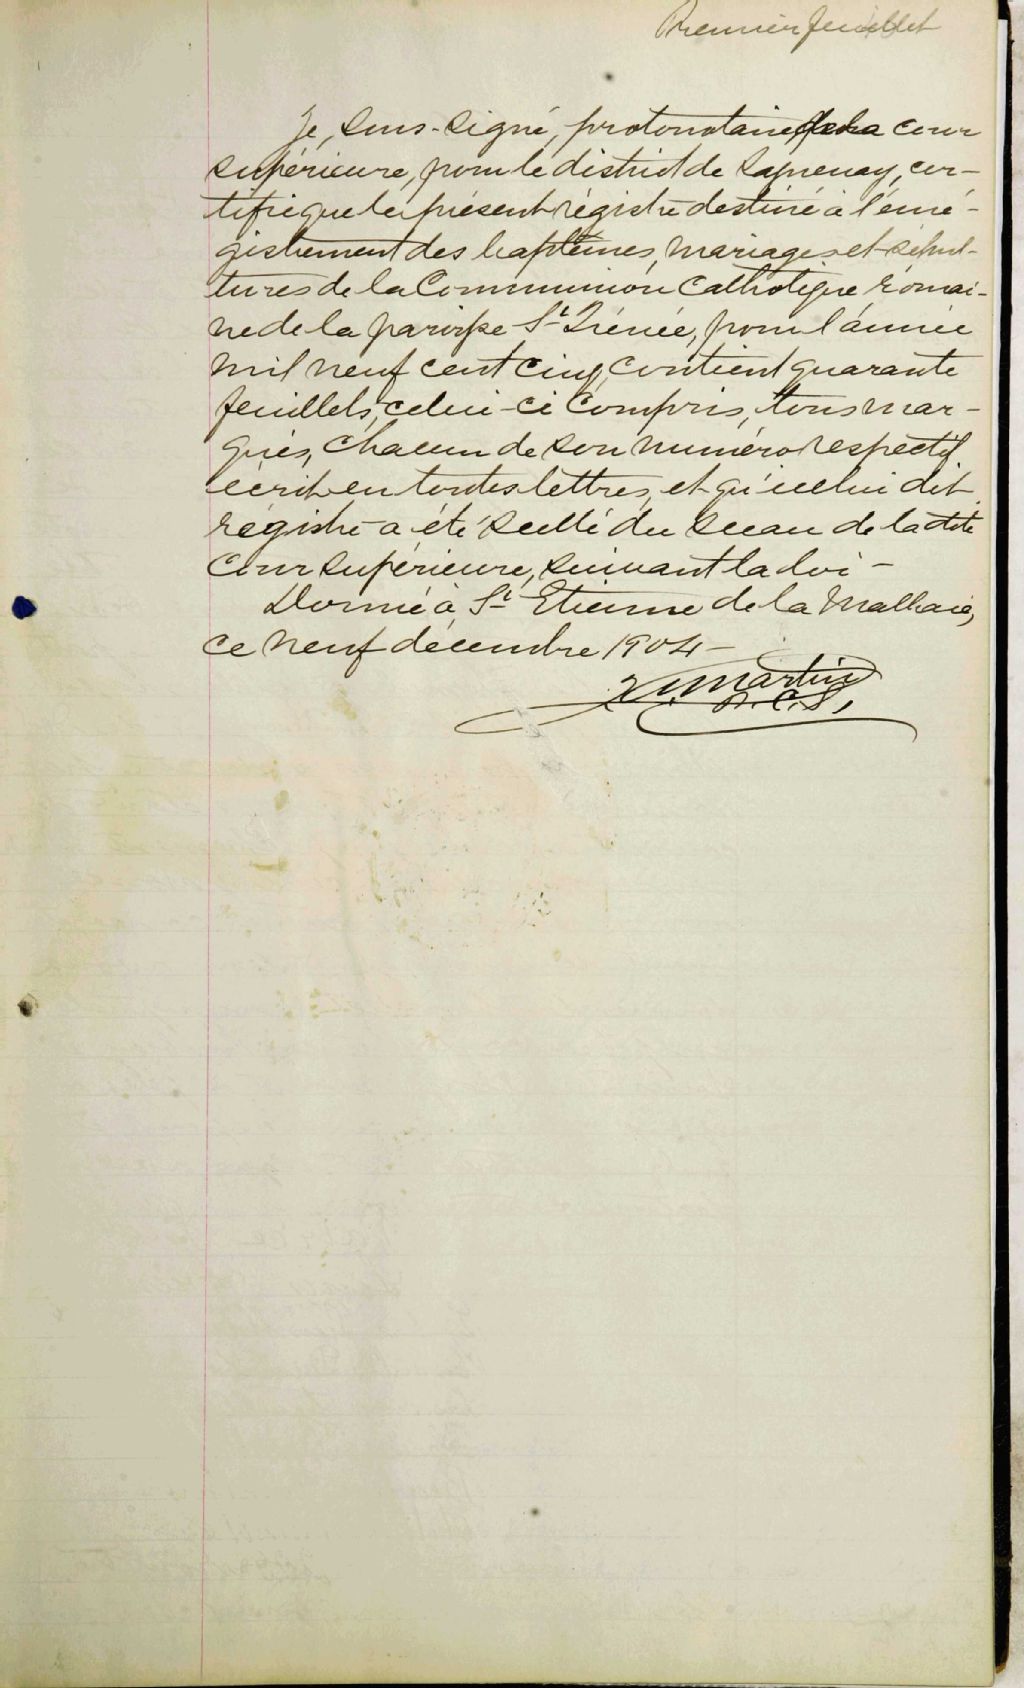 Premier feuillet
Je, sous-signé, protonotaire de la cour
supérieure, pour le district de Saguenay, cer-
tifie que le présent régistre destiné à l'enré-
gistrement des baptêmes, mariages et sépul-
tures de la Communion Catholique romai-
ne de la paroisse St Irénée, pour l'année
mil neuf cent cinq, contient quarante
feuillets, celui-ci compris, tous mar-
qués, chacun de son numéro respectif
écrit en toutes lettres, et qu'icelui dit
régistre a été scellé du sceau de la dite
Cour supérieure, suivant la loi -
Donné à St Etienne de la Malbaie,
ce neuf décembre 1904 -
Martin
P.C.S.